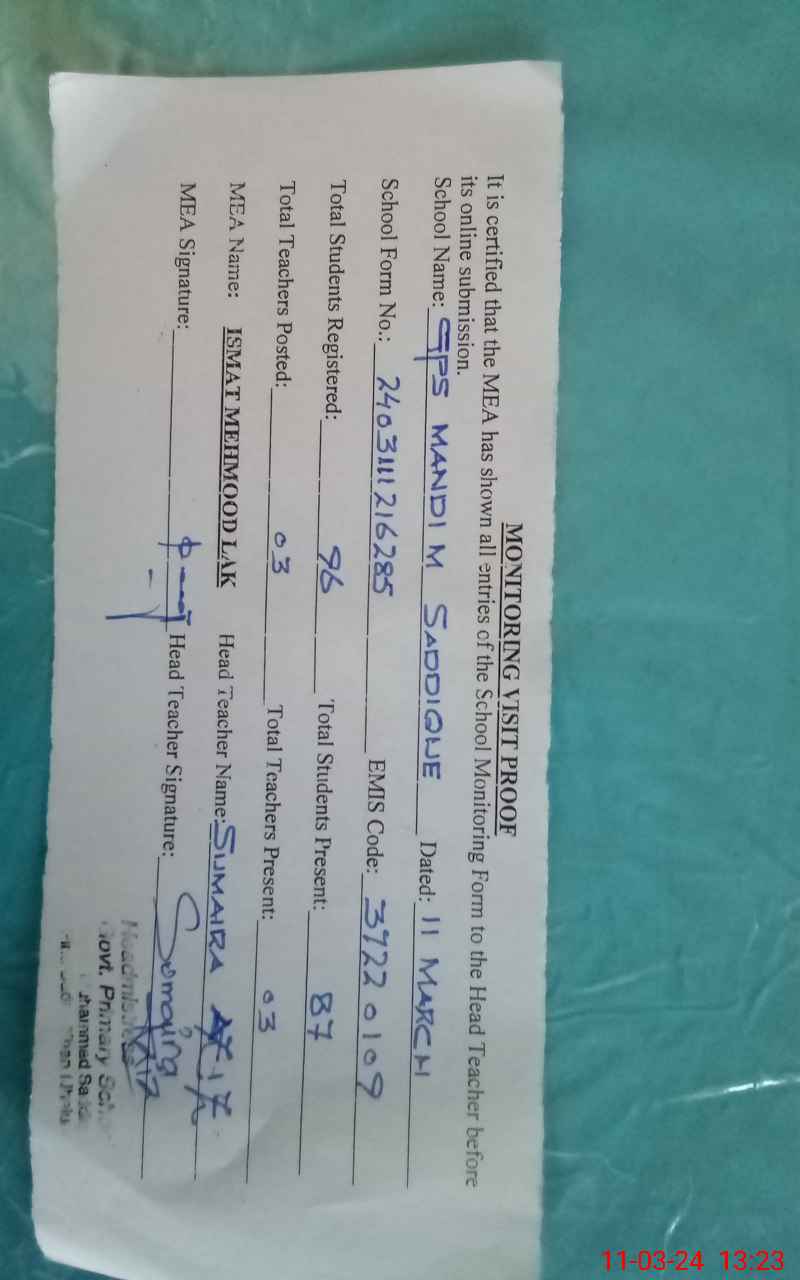 MONITORING VISIT PROOF
It is certified that the MEA has shown all entries of the School Monitoring Form to the Head Teacher before
its online submission.
School Name: GPS MANDI M SADDIQUE Dated: 11 MARCH
School Form No.: 2403111216285 EMIS Code: 37220109
Total Students Registered: 96 Total Students Present: 87
Total Teachers Posted: 03 Total Teachers Present: 03
MEA Name: ISMAT MEHMOOD LAK Head Teacher Name: SUMAIRA
MEA Signature: Head Teacher Signature: Sumaira
Headmistress
Govt. Primary
11-03-24 13:23